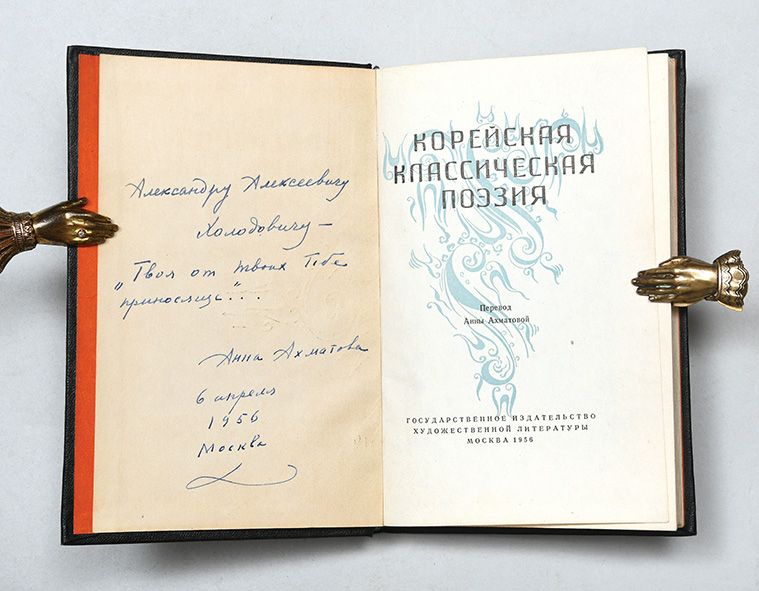 Александру Алексеевичу
Холодовичу —
„Твоя от твоих Тебе
приносяще"...
Анна Ахматова
6 апреля
1956
Москва
КОРЕЙСКАЯ
КЛАССИЧЕСКАЯ
ПОЭЗИЯ
Перевод
Анны Ахматовой
ГОСУДАРСТВЕННОЕ ИЗДАТЕЛЬСТВО
ХУДОЖЕСТВЕННОЙ ЛИТЕРАТУРЫ
МОСКВА 1956